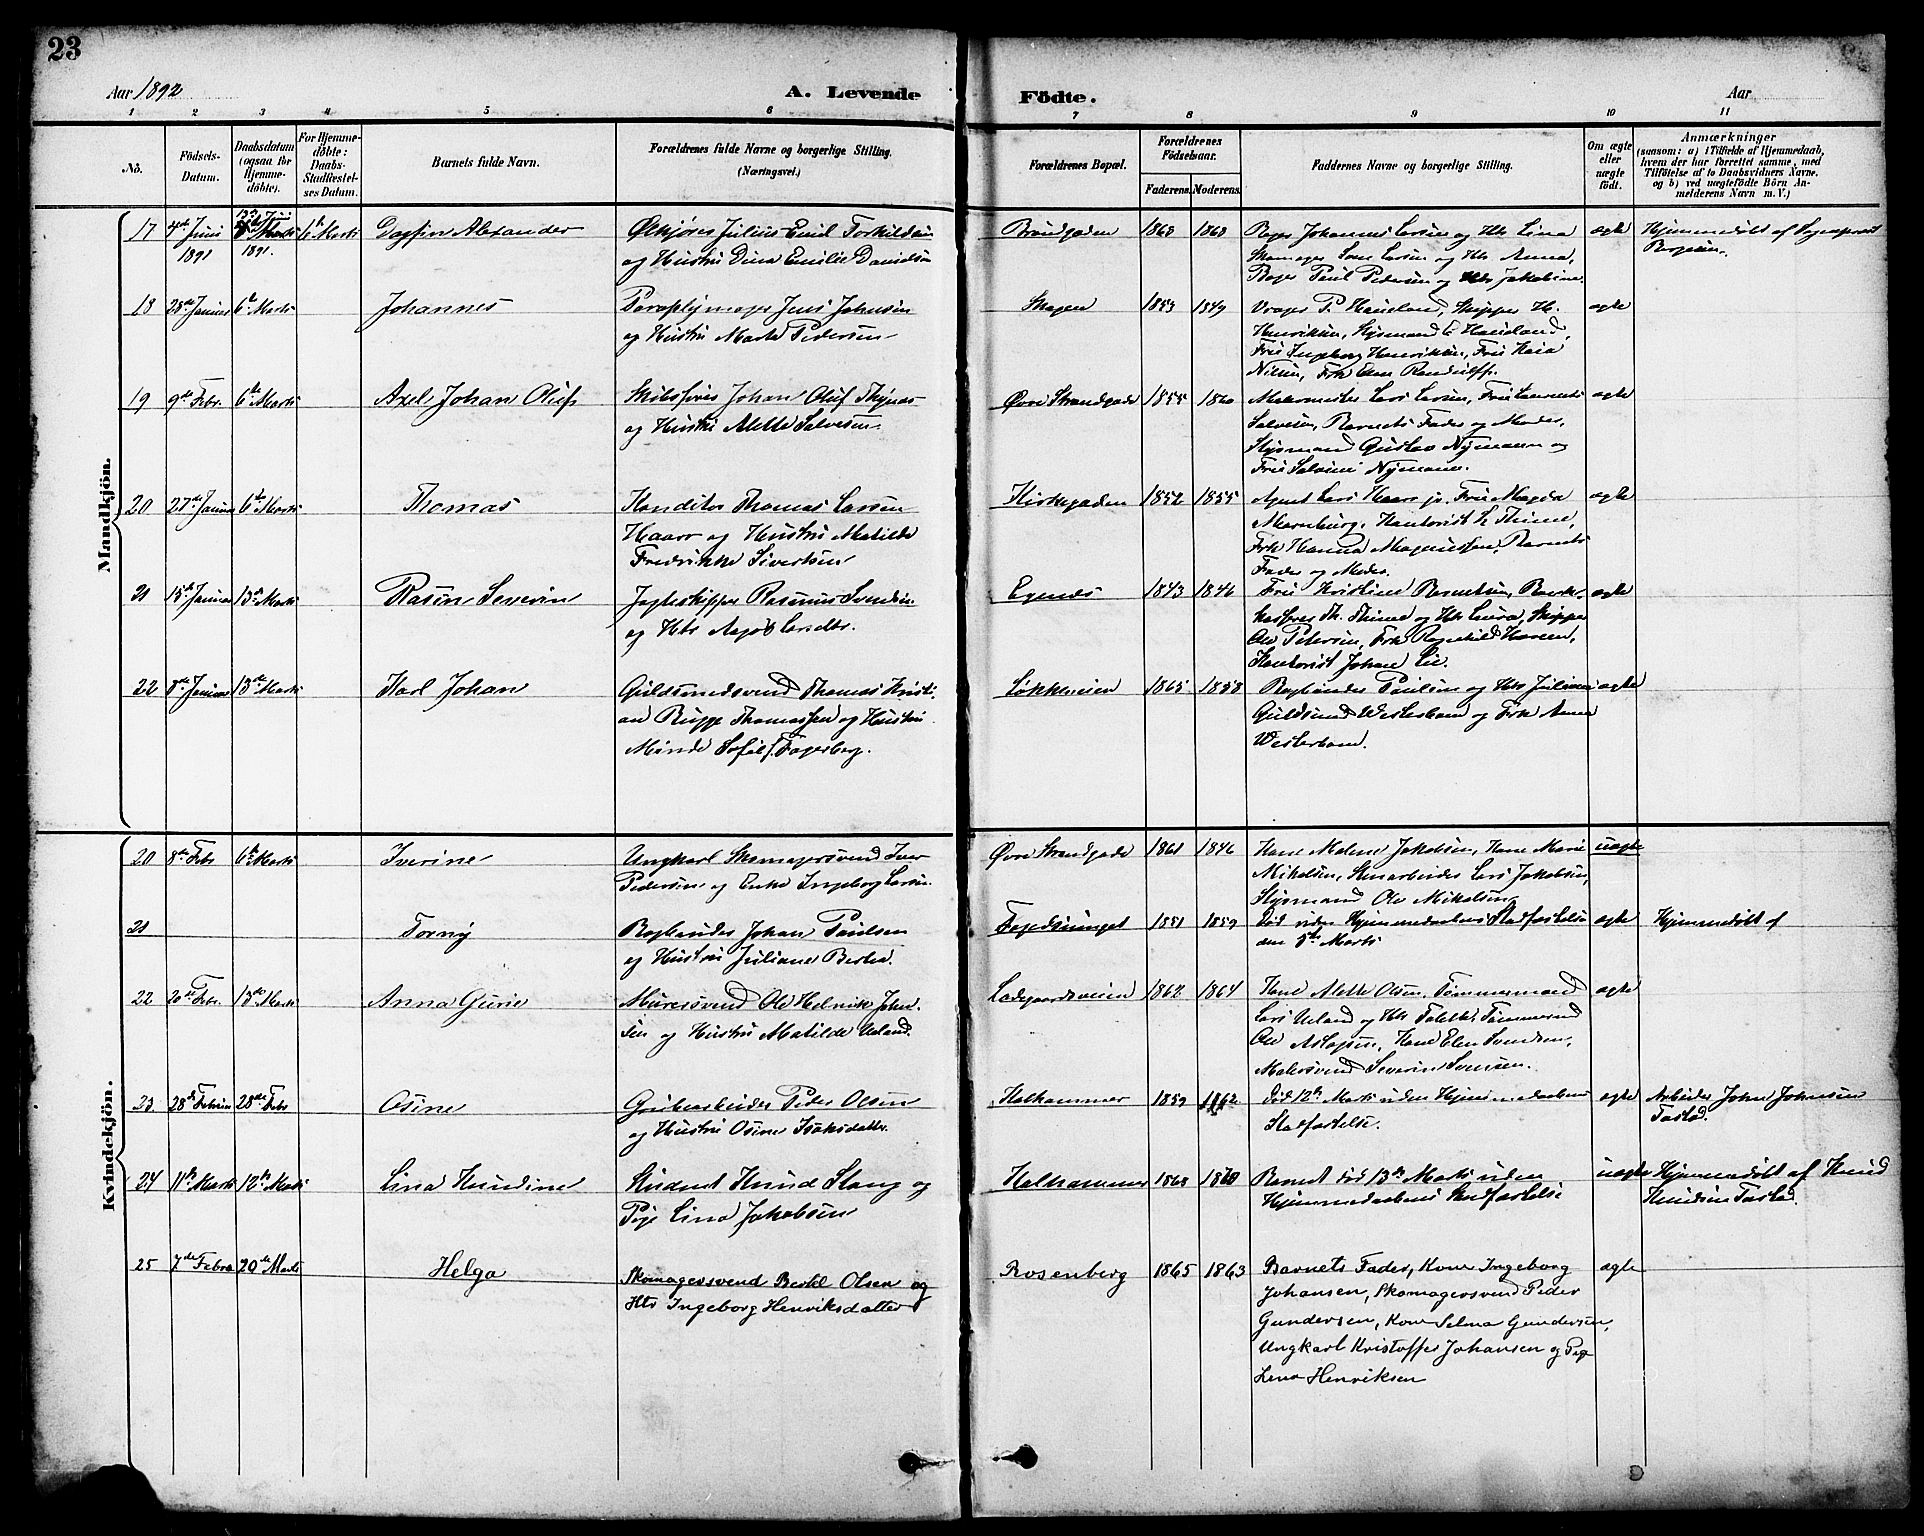 23
Aar 1892
A. Levende
Födte.
Aar
1 2 3 4 5 6 7 8 9 10 11
No.
Födsels-
Datum.
Daabsdatum
(ogsaa for
Hjemme-
døbte).
For Hjemme-
døbte:
Daabs-
Stadfæstel-
ses Datum.
Barnets fulde Navn.
Forældrenes fulde Navne og borgerlige Stilling.
(Næringsvei.)
Forældrenes Bopæl.
Forældrenes
Födselsaar.
Faderens. Moderens.
Faddernes Navne og borgerlige Stilling.
Om ægte
eller
uægte
født.
Anmærkninger
(saasom: a) i Tilfælde af Hjemmedaab,
hvem der har forrettet samme, med
Tilföielse af to Daabsvidners Navne,
og b) ved uægtefödte Börn An-
melderens Navn m. V.)
Mandkjön.
17 Juni 1891 6te Marts Dagfin Alexander
Julius Emil Torkildsen
og Hustru Dina Emilie Davidsen
1868 1868
Johannes Larsen og Hts Lina
Larsen og Hts Anna,
Paul Pedersen og Hts Jakobine
ægte
Hjemmedøbt af Sogneprest
18 28de Januar 6te Marts Johannes
Paraplymager Jens Johnsen
og Hustru Marte Pedersen
Skagen 1853 1849
P. Haueland, Skipper H.
Henriksen, Styrmand Haueland,
Frue Ingeborg Henriksen, Frue
Nielsen, Frk
ægte
19 9de Febr. 6te Marts Axel Johan Oluf
Skibsfører Johan Oluf
og Hustru Mette Salvesen
Øvre Strandgade 1855 1860
Lars Larsen, Frue
Salvesen, Barnets Fader og Moder,
Styrmand Gustav Nymann og
Frue Nymann.
ægte
20 27de Januar 6te Marts Thomas
Konditor Thomas Larsen
Haarr og Hustru Matilde
Fredrikke Sivertsen
Kirkegaden 1852 1855
Agent Lars Haarr jr. Frue Magda
Kontorist Thime,
Frk Hanna Magnussen, Barnets
Fader og Moder.
ægte
21 15de Januar 13de Marts Rasin Severin
Jagteskipper Rasmus Svendsen
og Hts Larsdtr.
Egenæs 1843 1846
Frue Kristine Berentsen,
Th. Thime og Hts Laura, Skipper
Ole Petersen, Frk Ragnhild Hansen,
Kontorist Johan Lie.
ægte
22 Januar 13de Marts Karl Johan
Guldsmedsvend Thomas Krist-
ian Bugge Thomassen og Hustru
Minda Sofie Fagerberg.
Løkkeveien 1865 1858
Bogbinder Paulsen og Hts Juliane
Guldsmed og Frk Anna
ægte
Kvindekjön.
20 8de Febr 6te Marts Iverine
Ungkarl Skomagersvend Iver
Pedersen og Enke Ingeborg Larsen
Øvre Strandgade 1861 1846
Kone Malene Jakobsen, Kone Marie
Mikalsen, Stenarbeider Lars Jakobsen,
Styrmand Ole Mikalsen
uægte
21 Torny
Bogbinder Johan Paulsen
og Hustru Juliane Bertea.
1851 1859
Død uden Hjemmedaabens Stadfæstelse
den 5te Marts
ægte
Hjemmedøbt af
22 20de Febr. 13de Marts Anna Gurie
Murersvend Ole Helvik John-
sen og Hustru Matilde Ueland.
Ladegaardsveien 1862 1864
Kone Mette Olsen, Tømmermand
Lars Ueland og Hts Tømmermd
Ole Aslagsen, Kone Elen Svendsen,
Malersvend Severin Svensen.
ægte
23 28de Februar 28de Febr Osine
Grubearbeider Peder Olsen
og Hustru Osine Isaksdatter
Kalhammer 1859 1862
Død 12te Marts uden Hjemmedaabens
Stadfæstelse.
ægte
Arbeider John Johnsen
Tastad.
24 11te Marts 12te Marts Lina Knudine
Student Knud Stang og
Pige Lina Jakobsen
Kalhammer 1868 1870
Barnet død 13de Marts uden
Hjemmedaabens Stadfæstelse
uægte
Hjemmedøbt af Knud
Knudsen Tastad.
25 7de Febru 20de Marts Helga
Skomagersvend Bertel Olsen og
Hts Ingeborg Henriksdatter
Rosenberg 1865 1863
Barnets Fader, Kone Ingeborg
Johansen, Skomagersvend Peder
Gundersen, Kone Selma Gundersen,
Ungkarl Kristoffer Johansen og Pige
Lena Henriksen
ægte